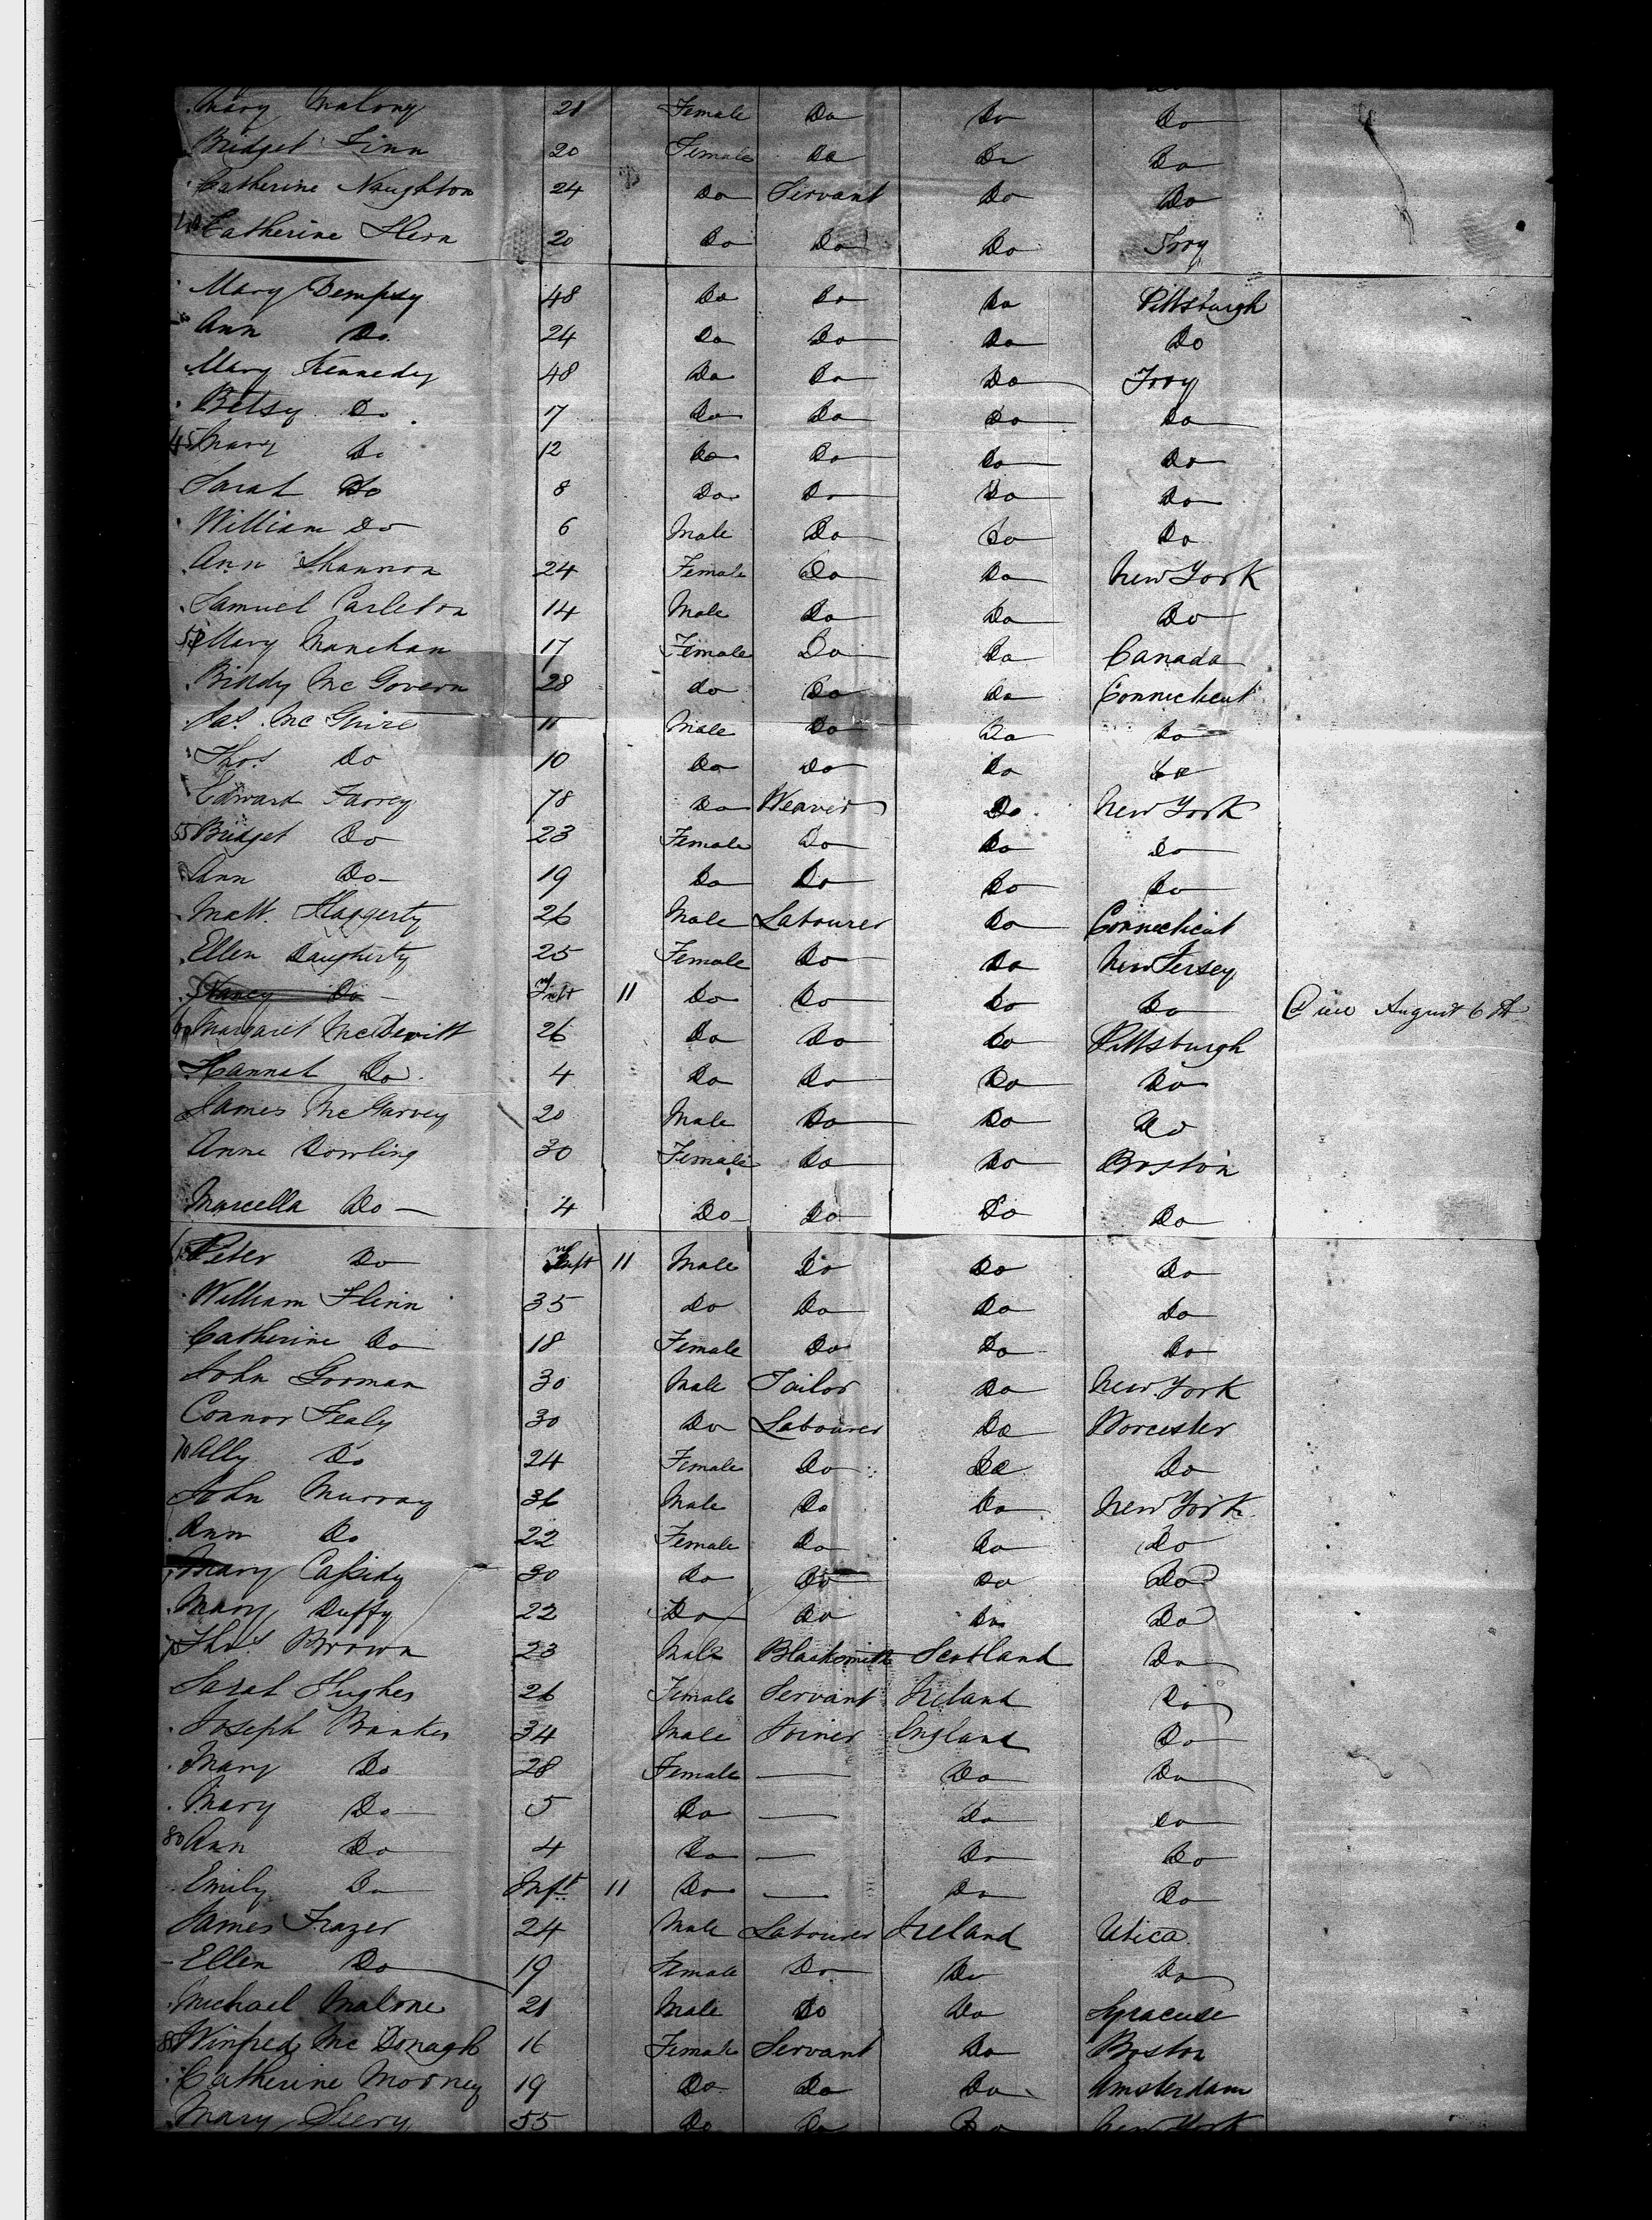 Mary Malony 21 Female Do Do Do
Bridget Finn 20 Female Do Do Do
Catherine Naughton 24 Do Servant Do Do
40 Catherine Hern 20 Do Do Do Troy
Mary Dempsy 48 Do Do Do Pittsburgh
Ann Do 24 Do Do Do Do
Mary Kennedy 48 Do Do Do Troy
Betsy Do 17 Do Do Do Do
45 Mary Do 12 Do Do Do Do
Sarah Do 8 Do Do Do Do
William Do 6 Male Do Do Do
Ann Shannon 24 Female Do Do New York
Samuel Carleton 14 Male Do Do Do
50 Mary Manehan 17 Female Do Do Canada
Biddy McGovern 28 do Do Do Connecticut
Jas. McGuire 11 Male Do Do Do
Thos Do 10 Do Do Do Do
Edward Farrey 78 Do Weaver Do New York
55 Bridget Do 23 Female Do Do Do
Ann Do 19 Do Do Do Do
Matt. Haggerty 26 Male Labourer Do Connecticut
Ellen Daugherty 25 Female Do Do New Jersey
Nancy Do Inft 11 Do Do Do Do August 6th
60 Margaret McDevitt 26 Do Do Do Pittsburgh
Hannah Do 4 Do Do Do Do
James McGarvey 20 Male Do Do Do
Anne Dowling 30 Female Do Do Boston
Marcella Do 4 Do Do Do Do
65 Peter Do Inft 11 Male Do Do Do
William Flinn 35 do Do Do Do
Catherine Do 18 Female Do Do Do
John Gorman 30 Male Tailor Do New York
Connor Fealy 30 Do Labourer Do Worcester
70 Ally Do 24 Female Do Do Do
John Murray 36 Male Do Do New York
Ann Do 22 Female Do Do Do
Mary Cassidy 30 Do Do Do Do
Mary Duffy 22 Do Do Do Do
75 Thos Brown 23 Male Blacksmith Scotland Do
Sarah Hughes 26 Female Servant Ireland Do
Joseph Bankes 34 Male Joiner England Do
Mary Do 28 Female — Do Do
Mary Do 5 Do — Do Do
80 Ann Do 4 Do — Do Do
Emily Do Inft 11 Do — Do Do
James Frazer 24 Male Labourer Ireland Utica
Ellen Do 19 Female Do Do Do
Michael Malone 21 Male Do Do Syracuse
85 Winfred McDonagh 16 Female Servant Do Boston
Catherine Mooney 19 Do Do Do Amsterdam
Mary Seery 55 Do Do Do New York